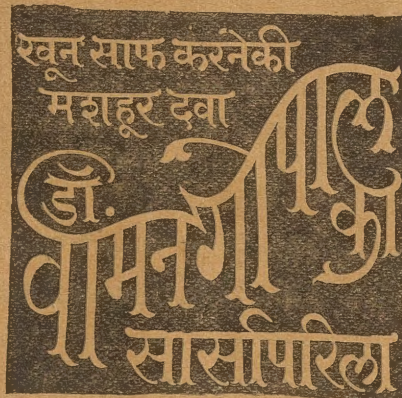 खून साफ करनेकी
मशहूर दवा
डॉ.
वामन गोपाल
का
सार्सापरिला